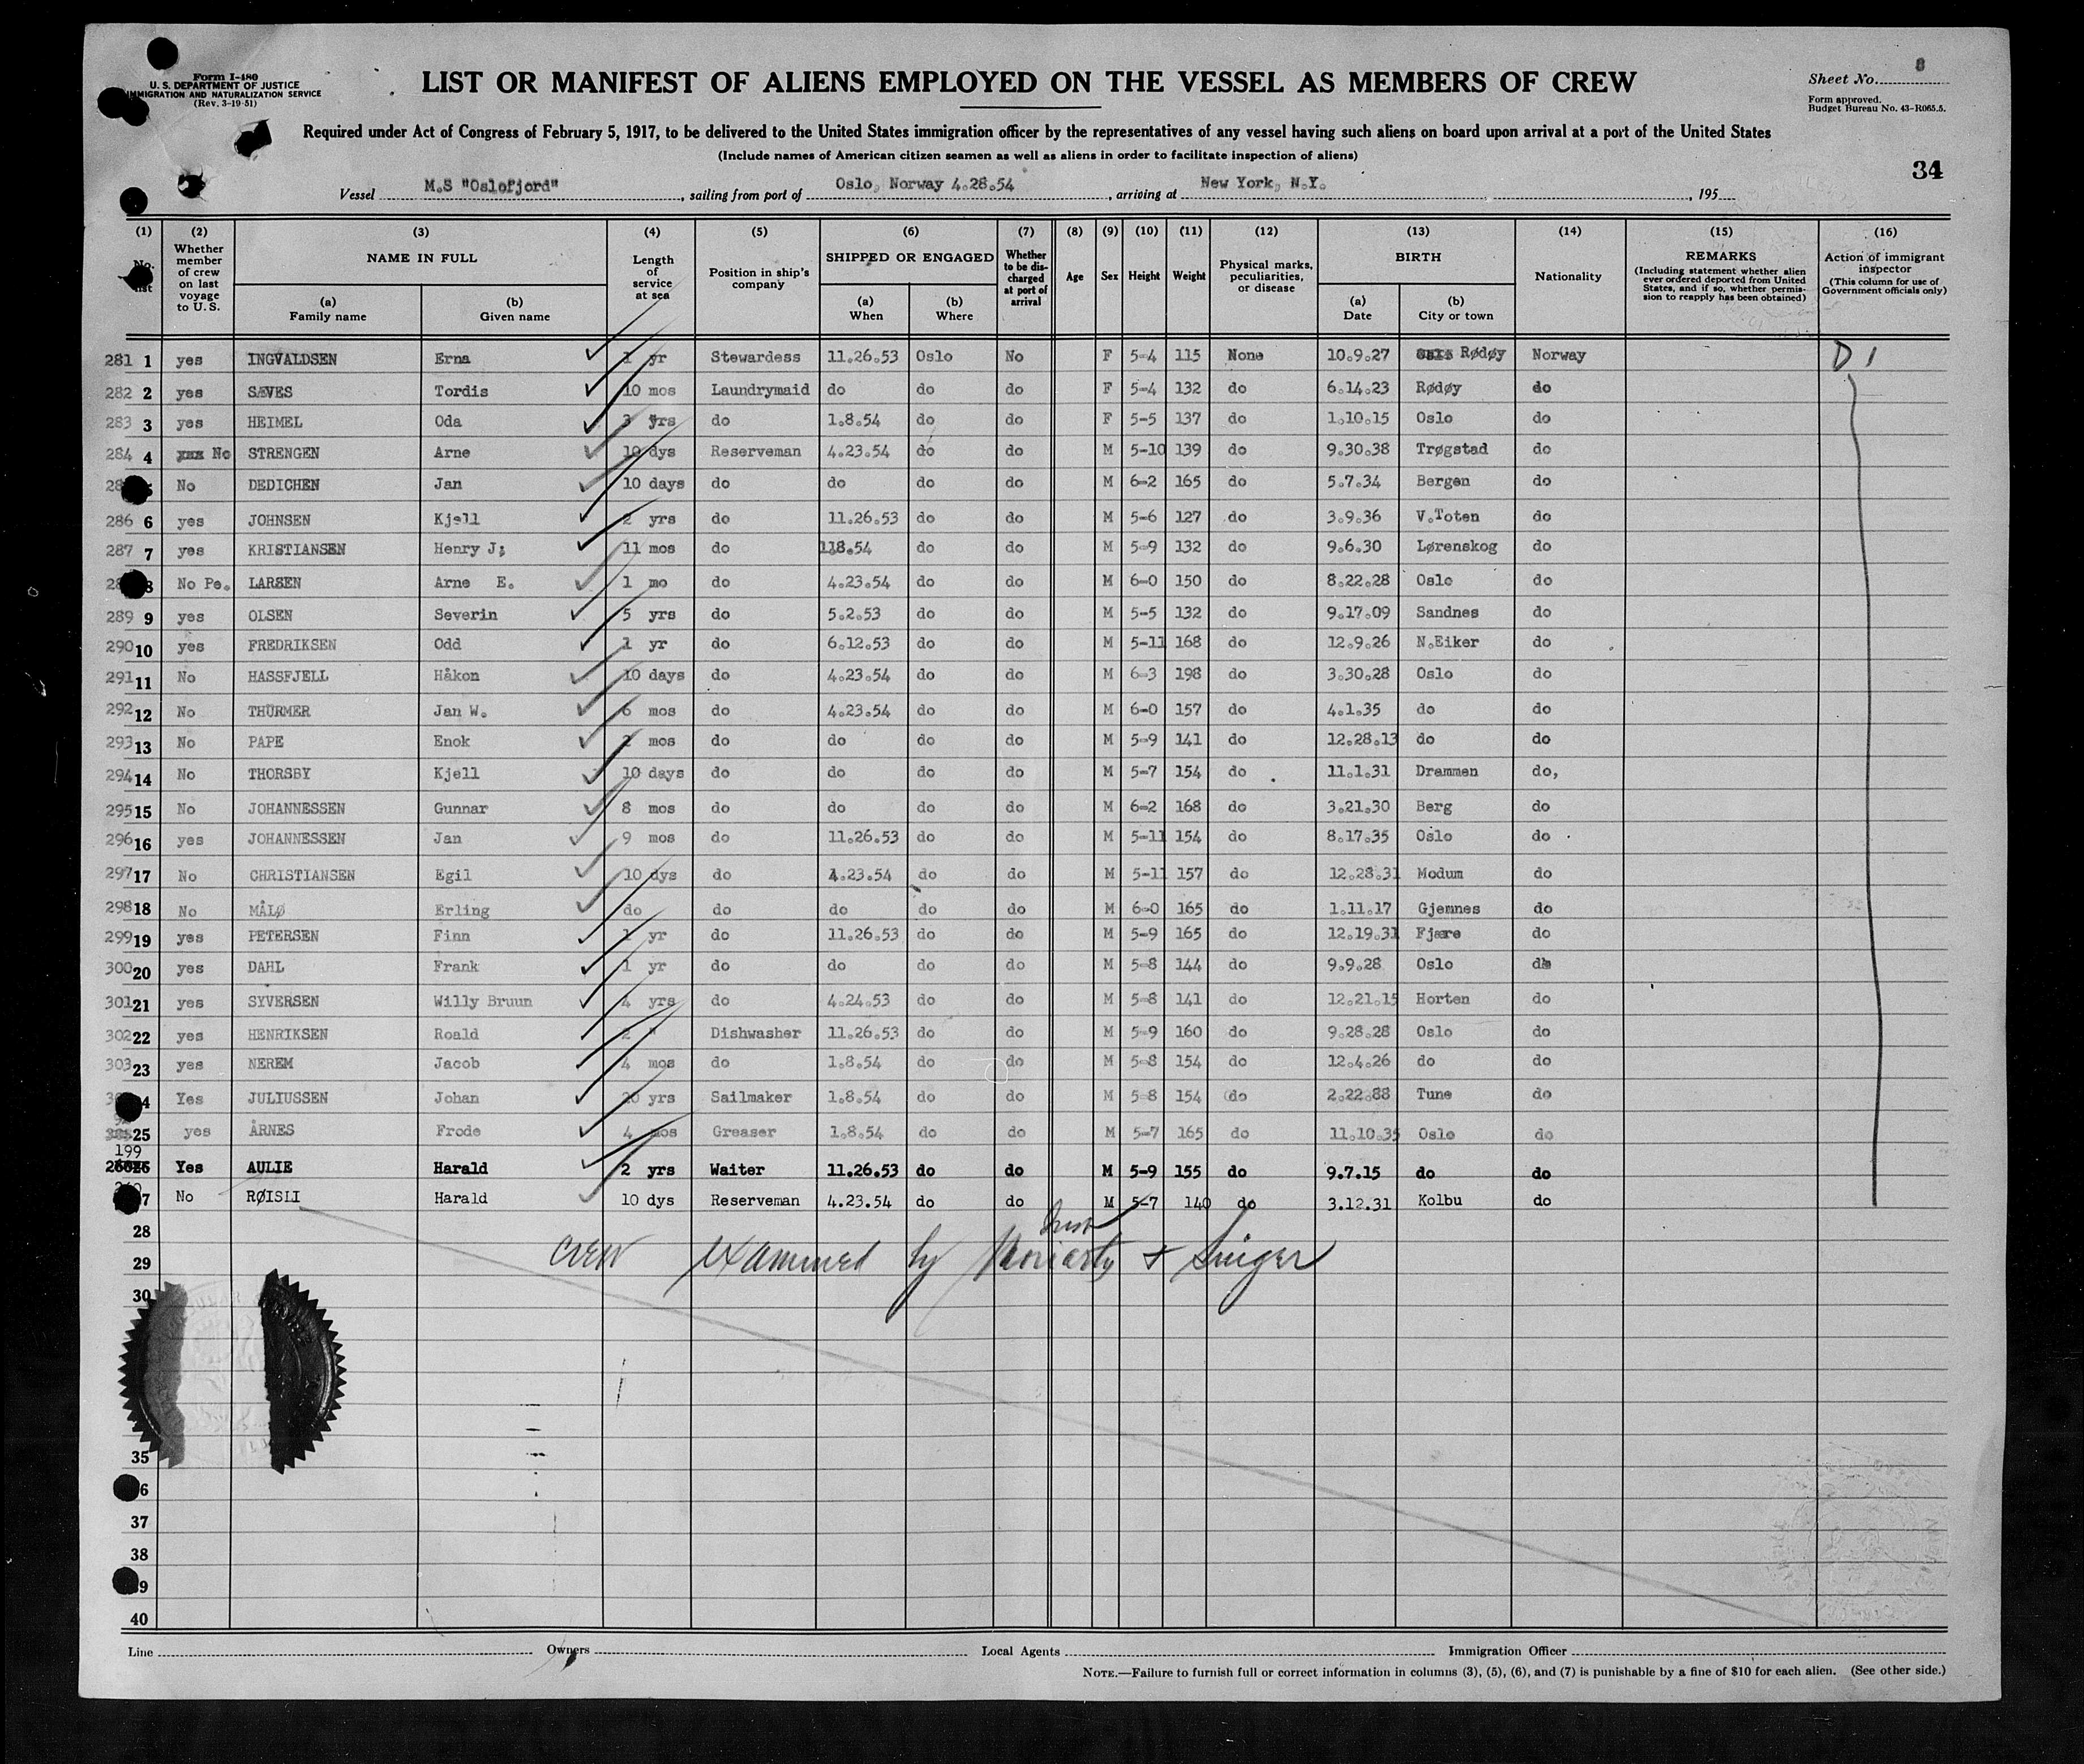 Form I-480
U. S. DEPARTMENT OF JUSTICE
IMMIGRATION AND NATURALIZATION SERVICE
(Rev. 3-19-51)
LIST OR MANIFEST OF ALIENS EMPLOYED ON THE VESSEL AS MEMBERS OF CREW
Sheet No. 8
Form approved.
Budget Bureau No. 43-R065.5.
Required under Act of Congress of February 5, 1917, to be delivered to the United States immigration officer by the representatives of any vessel having such aliens on board upon arrival at a port of the United States
(Include names of American citizen seamen as well as aliens in order to facilitate inspection of aliens)
34
Vessel M.S "Oslofjord", sailing from port of Oslo, Norway 4.28.54, arriving at New York, N.Y., 195
(1) (2) (3) (4) (5) (6) (7) (8) (9) (10) (11) (12) (13) (14) (15) (16)
No. list
Whether member of crew on last voyage to U. S.
NAME IN FULL
(a) Family name
(b) Given name
Length of service at sea
Position in ship's company
SHIPPED OR ENGAGED
(a) When
(b) Where
Whether to be discharged at port of arrival
Age
Sex
Height
Weight
Physical marks, peculiarities, or disease
BIRTH
(a) Date
(b) City or town
Nationality
REMARKS
(Including statement whether alien ever ordered deported from United States, and if so, whether permission to reapply has been obtained)
Action of immigrant inspector
(This column for use of Government officials only)
281 1 yes INGVALDSEN Erna 1 yr Stewardess 11.26.53 Oslo No F 5-4 115 None 10.9.27 Rødøy Norway D 1
282 2 yes SÆVES Tordis 10 mos Laundrymaid do do do F 5-4 132 do 6.14.23 Rødøy do
283 3 yes HEIMEL Oda 3 yrs do 1.8.54 do do F 5-5 137 do 1.10.15 Oslo do
284 4 No STRENGEN Arne 10 dys Reserveman 4.23.54 do do M 5-10 139 do 9.30.38 Trøgstad do
No DEDICHEN Jan 10 days do do do do M 6-2 165 do 5.7.34 Bergen do
286 6 yes JOHNSEN Kjell 2 yrs do 11.26.53 do do M 5-6 127 do 3.9.36 V.Toten do
287 7 yes KRISTIANSEN Henry J; 11 mos do 118.54 do do M 5-9 132 do 9.6.30 Lørenskog do
8 No Pe. LARSEN Arne E. 1 mo do 4.23.54 do do M 6-0 150 do 8.22.28 Oslo do
289 9 yes OLSEN Severin 5 yrs do 5.2.53 do do M 5-5 132 do 9.17.09 Sandnes do
290 10 yes FREDRIKSEN Odd 1 yr do 6.12.53 do do M 5-11 168 do 12.9.26 N.Eiker do
291 11 No HASSFJELL Håkon 10 days do 4.23.54 do do M 6-3 198 do 3.30.28 Oslo do
292 12 No THÜRMER Jan W. 6 mos do 4.23.54 do do M 6-0 157 do 4.1.35 do do
293 13 No PAPE Enok 2 mos do do do do M 5-9 141 do 12.28.13 do do
294 14 No THORSBY Kjell 10 days do do do do M 5-7 154 do 11.1.31 Drammen do,
295 15 No JOHANNESSEN Gunnar 8 mos do do do do M 6-2 168 do 3.21.30 Berg do
296 16 yes JOHANNESSEN Jan 9 mos do 11.26.53 do do M 5-11 154 do 8.17.35 Oslo do
297 17 No CHRISTIANSEN Egil 10 dys do 4.23.54 do do M 5-11 157 do 12.28.31 Modum do
298 18 No MÅLØ Erling do do do do do M 6-0 165 do 1.11.17 Gjemnes do
299 19 yes PETERSEN Finn 1 yr do 11.26.53 do do M 5-9 165 do 12.19.31 Fjære do
300 20 yes DAHL Frank 1 yr do do do do M 5-8 144 do 9.9.28 Oslo do
301 21 yes SYVERSEN Willy Bruun 4 yrs do 4.24.53 do do M 5-8 141 do 12.21.15 Horten do
302 22 yes HENRIKSEN Roald 2 " Dishwasher 11.26.53 do do M 5-9 160 do 9.28.28 Oslo do
303 23 yes NEREM Jacob 4 mos do 1.8.54 do do M 5-8 154 do 12.4.26 do do
4 Yes JULIUSSEN Johan 20 yrs Sailmaker 1.8.54 do do M 5-8 154 do 2.22.88 Tune do
25 yes ÅRNES Frode 4 mos Greaser 1.8.54 do do M 5-7 165 do 11.10.35 Oslo do
199
26 Yes AULIE Harald 2 yrs Waiter 11.26.53 do do M 5-9 155 do 9.7.15 do do
7 No RØISLI Harald 10 dys Reserveman 4.23.54 do do M 5-7 140 do 3.12.31 Kolbu do
28
crew examined by Moriarty + Singer
29
30
35
6
37
38
9
40
Line Owners Local Agents Immigration Officer
NOTE.—Failure to furnish full or correct information in columns (3), (5), (6), and (7) is punishable by a fine of $10 for each alien. (See other side.)